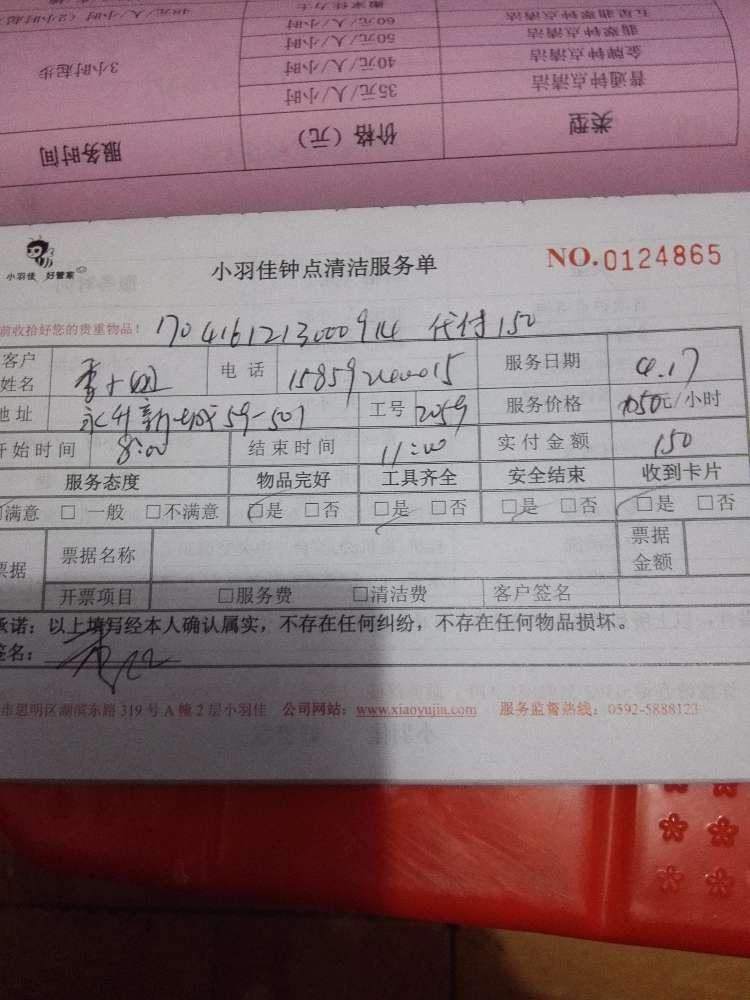 48元/人/小时（2小时起
60元/人/小时 五星翡翠钟点清洁
50元/人/小时 翡翠钟点清洁
3小时起步 40元/人/小时 金牌钟点清洁
35元/人/小时 普通钟点清洁
服务时间 价格（元） 类型
小羽佳 好管家
小羽佳钟点清洁服务单
NO.0124865
前收拾好您的贵重物品！ 170416121300914 代付150
客户姓名 电话 服务日期 4.17
地址 永升新城59-501 工号 2059 服务价格 50元/小时
开始时间 8:00 结束时间 11:00 实付金额 150
服务态度 物品完好 工具齐全 安全结束 收到卡片
满意 □ 一般 □不满意 □是 □否 □是 □否 □是 □否 □是 □否
票据 票据名称 票据金额
开票项目 □服务费 □清洁费 客户签名
承诺：以上填写经本人确认属实，不存在任何纠纷，不存在任何物品损坏。
签名：
市思明区湖滨东路 319 号 A 幢 2 层小羽佳 公司网站：www.xiaoyujia.com 服务监督热线：0592-5888123